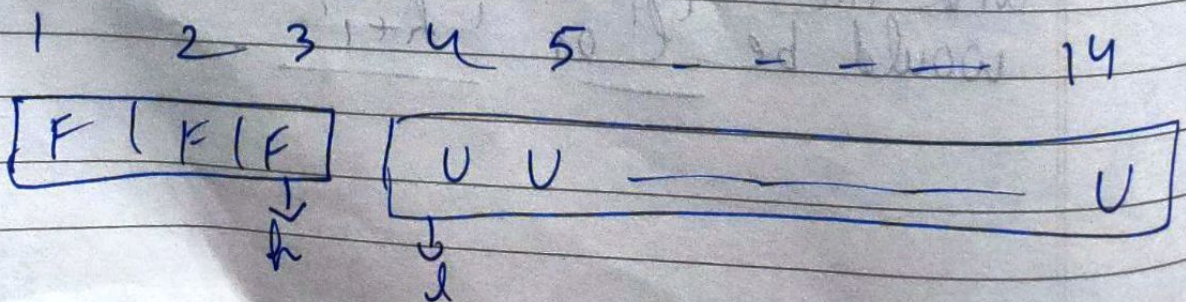 1 2 3 4 5 - - - - 14
F | F | F U U U
h l